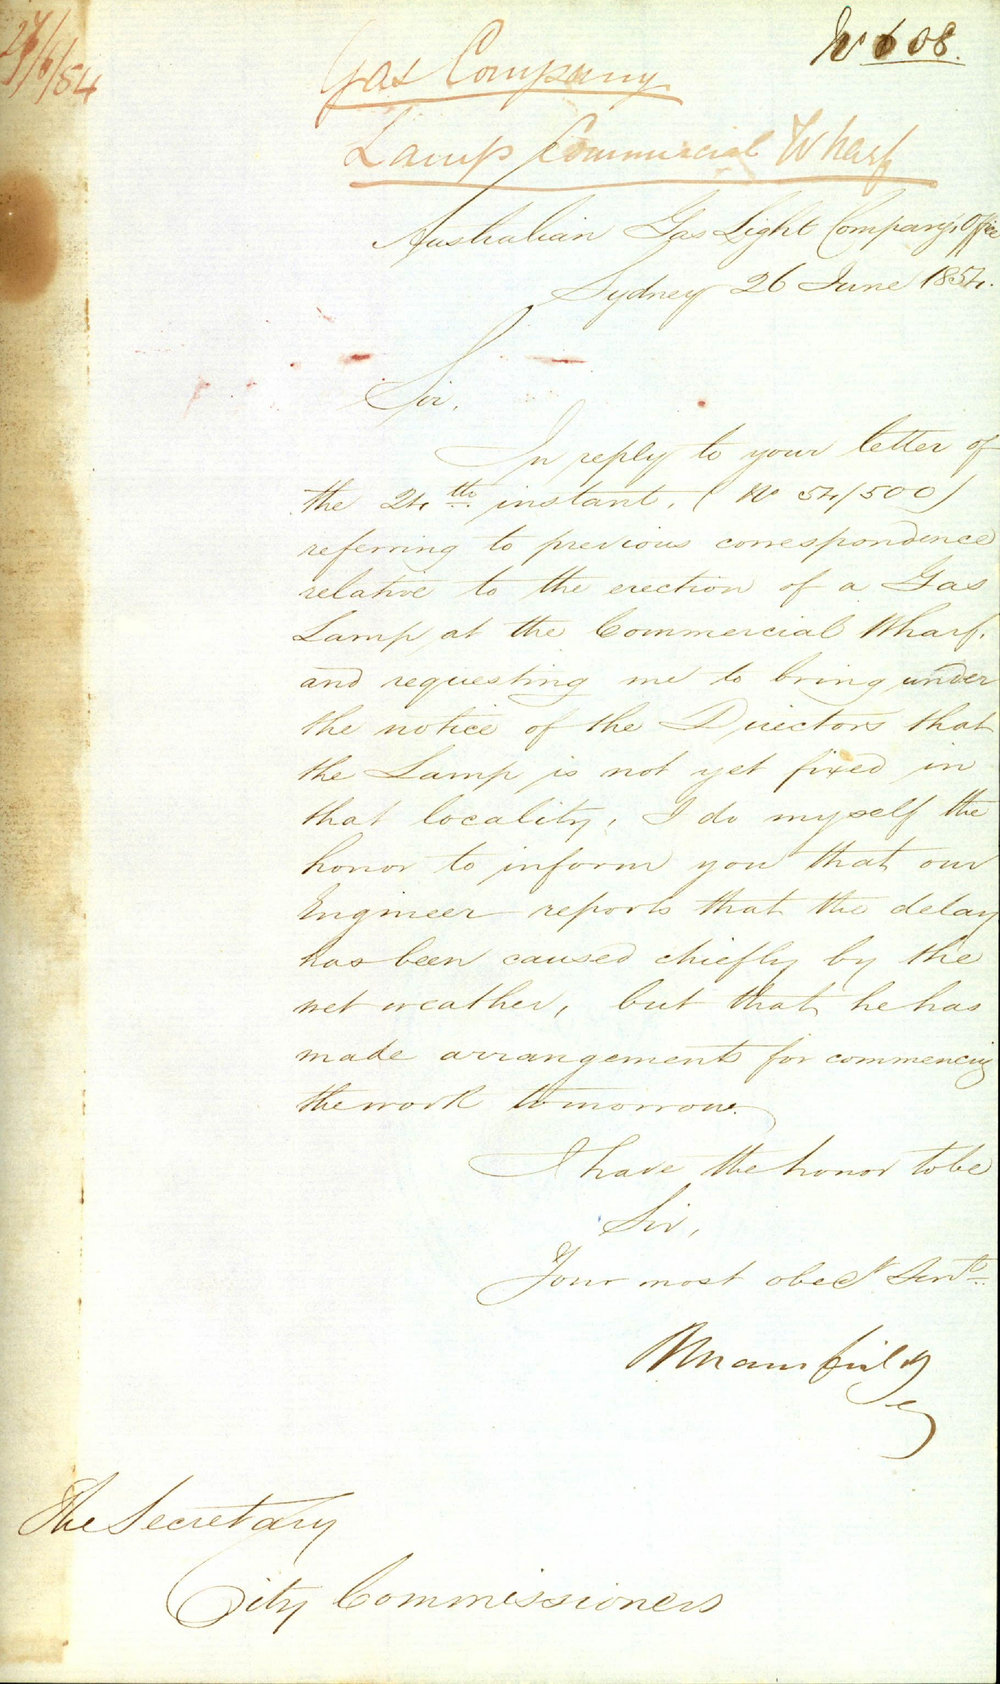 27/6/54
No 608.
Gas Company
Lamp Commercial Wharf
Australian Gas Light Company's Office
Sydney 26 June 1854.
Sir,
In reply to your letter of
the 24th instant, (No 54/500)
referring to previous correspondence
relative to the erection of a Gas
Lamp at the Commercial Wharf,
and requesting me to bring under
the notice of the Directors that
the Lamp is not yet fixed in
that locality, I do myself the
honor to inform you that our
Engineer reports that the delay
has been caused chiefly by the
wet weather, but that he has
made arrangements for commencing
the work tomorrow.
I have the honor to be
Sir,
Your most obedt Servt
R Mansfield
Sy
The Secretary
City Commissioners